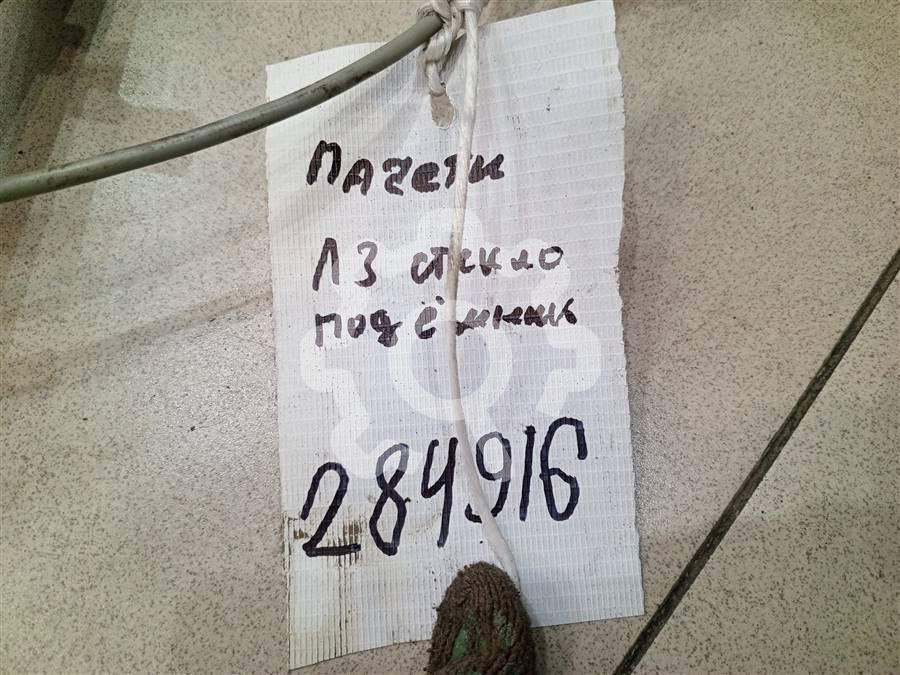 Лачетти
ЛЗ стекло
подъёмник
284916